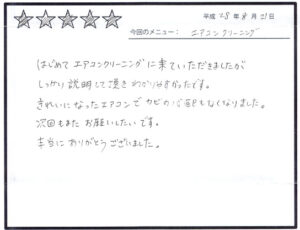 平成 28年 8月 21日
今回のメニュー: エアコンクリーニング
はじめて エアコンクリーニングに来ていただきましたが
しっかり説明して頂き わかりやすかったです。
きれいになったエアコンで カビの もなくなりました。
次回もまた お願いしたいです。
本当に ありがとうございました。